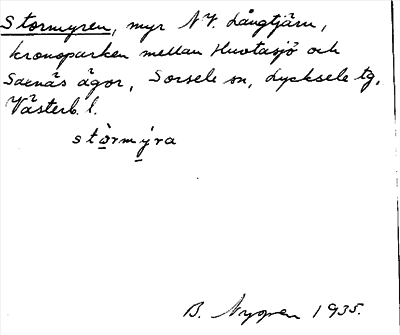 Stormyren, myr NV. Långtjärn,
kronoparken mellan Huotasjö och
Saxnäs ägor, Sorsele sn, Lycksele tg,
Västerb. l.
stòrmýra
B. Nygren 1935.